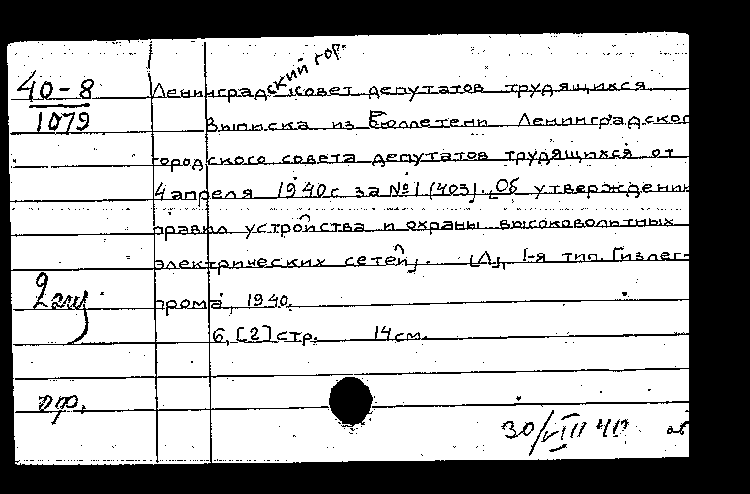 ский гор.
40-8
1079
Ленинградсовет депутатов трудящихся.
Выписка из Бюллетени Ленинградског
городского совета депутатов трудящихся от
4 апреля 1940 г. за №1 (403). „Об утверждении
правил устройства и охраны высоковольтных
электрических сетей". [Л], 1-я тип. Гизлег-
прома, 1940.
2 экз
6, [2] стр. 14 см.
30/VIII 40